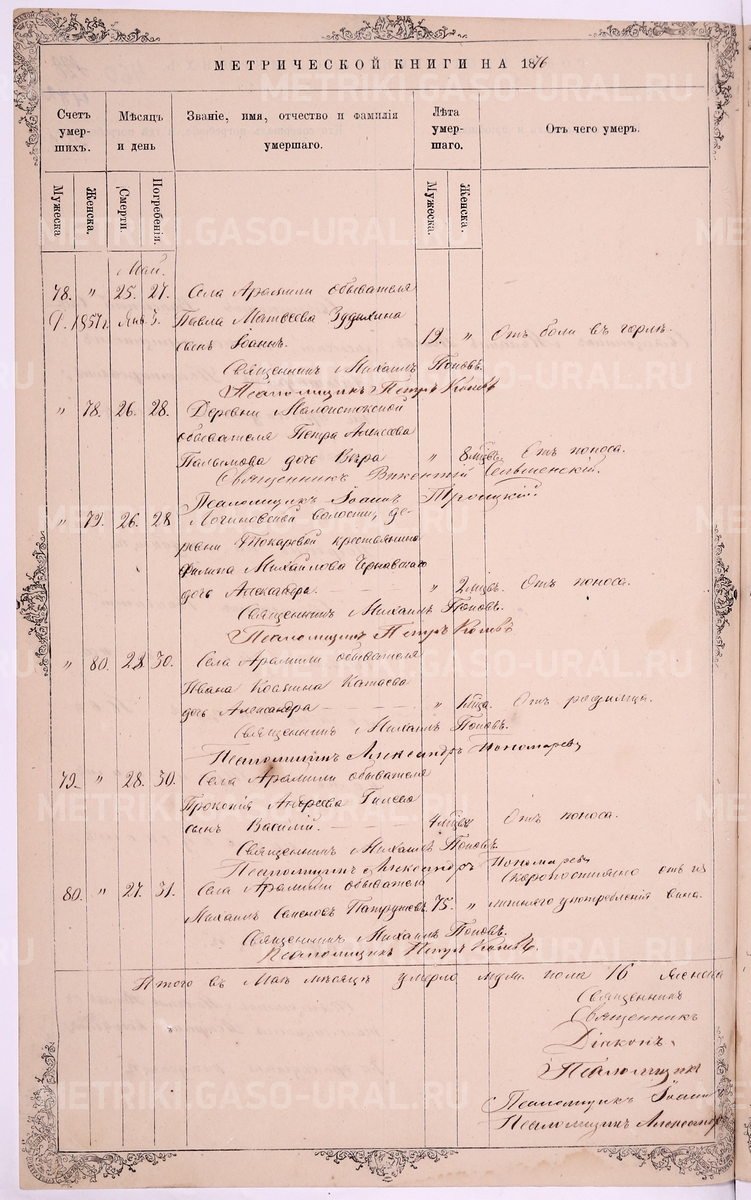 МЕТРИЧЕСКОЙ КНИГИ НА 1876
Счетъ умер-шихъ.
Мѣсяцъ и день
Званіе, имя, отчество и фамилія умершаго.
Лѣта умер-шаго.
Отъ чего умеръ.
Мужеска. Женска. Смерти. Погребенія. Мужеска. Женска.
Май.
78. " 25. 27. Села Арамили обывателя
Павла Матвеева
сынъ Іоаннъ. 19. " Отъ боли въ горлѣ.
Священникъ Михаилъ Поповъ.
Псаломщикъ Петръ
" 78. 26. 28. Деревни Малоистокской
обывателя Петра Алексеева
дочь Вѣра " 8 мѣсѣв. Отъ поноса.
Священникъ Викентій
Псаломщикъ Іоаннъ Троицкій.
" 79. 26. 28 Логиновской волости, де-
ревни Токаревой крестьянина
Филипа Михайлова
дочь Александра. " 2 мѣсѣв. Отъ поноса.
Священникъ Михаилъ Поповъ.
Псаломщикъ Петръ
" 80. 28 30. Села Арамили обывателя
Ивана Катаева
дочь Александра " Отъ родимца.
Священникъ Михаилъ Поповъ.
Псаломщикъ Александръ Пономаревъ
79. " 28. 30. Села Арамили обывателя
Прокопія Андреева
сынъ Василій. 4 Отъ поноса.
Священникъ Михаилъ Поповъ.
Псаломщикъ Александръ Пономаревъ
80. " 27. 31. Села Арамили обыватель Скоропостижно отъ из
Михаилъ Семеновъ Патрушевъ. 75. " лишняго употребленія вина.
Священникъ Михаилъ Поповъ.
Псаломщикъ Петръ
Итого въ Маѣ мѣсяцѣ умерло муж. пола 16 женска
Священникъ
Священникъ
Діаконъ.
Псаломщикъ
Псаломщикъ Іоаннъ
Псаломщикъ Александръ
METRIKI.GASO-URAL.RU